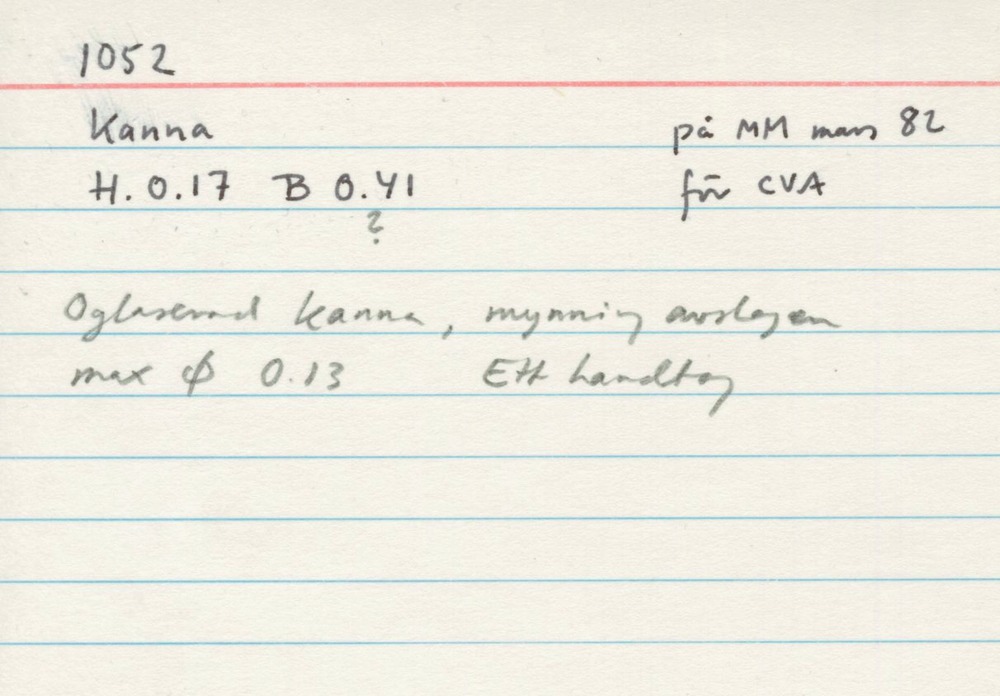 1052
Kanna på MM mars 82
H. 0.17 B 0.41 för CVA
?
Oglaserad kanna, mynning avslagen
max φ 0.13 Ett handtag